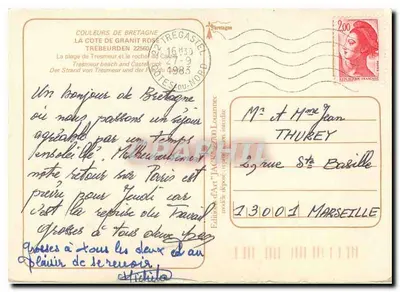 COULEURS DE BRETAGNE
LA COTE DE GRANIT ROSE
TREBEURDEN 22560
La plage de Tresmeur et le rocher de
Tresmeur beach and
Der Strand von Tresmeur und der
22 TREGASTEL
16 H
-7-9
1983
COTES DU NORD
Bretagne
2,00
Un Bonjour de Bretagne
où nous passons un séjour
agréable par un temps
ensoleillé. Malheureusement
notre retour sur Paris est
prévu pour Jeudi car
c'est la reprise du travail
grosses à tous deux
grosses à tous les deux et au
plaisir de se revoir,
Editions d'Art "JACK"
Louannec
Mr et Mme Jean
THUREY
29, rue Ste Baille
13001 MARSEILLE